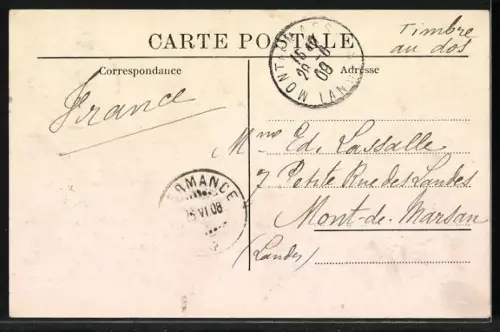 Timbre
au dos
CARTE POSTALE
Correspondance
Adresse
France
Mme Ed. Lassalle
7 Petite Rue des Landes
Mont-de-Marsan
(Landes)
MONT
LAND
08
ROMANCE
VI 08